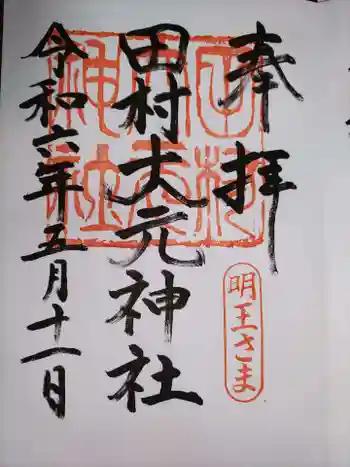 奉拝
明王さま
田村大元神社
令和六年五月十一日
田村大元神社